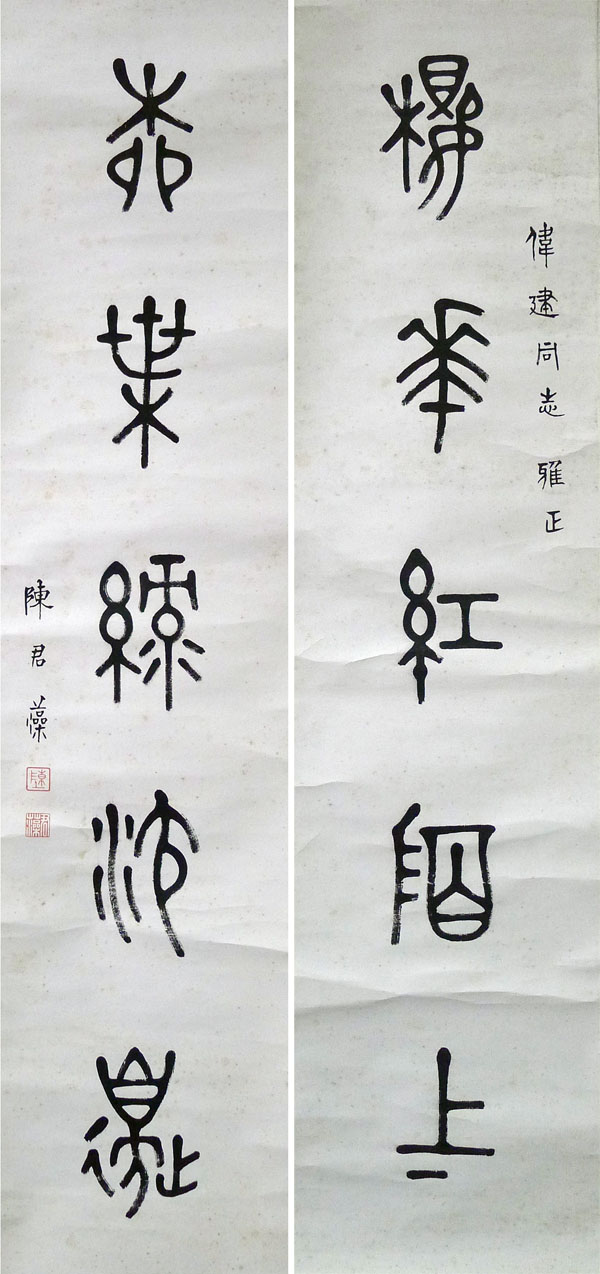 偉建同志 雅正
楊華紅陌上
柳葉綠池邊
陳君藻